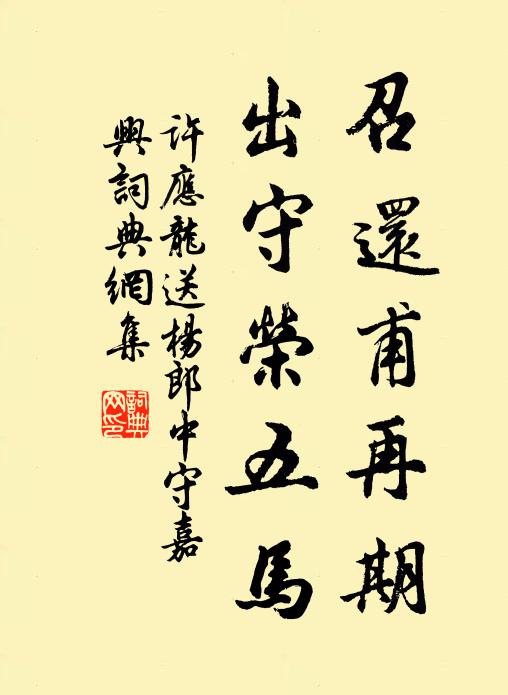 召還甫再期
出守榮五馬
許應龍送楊郎中守嘉
興詞典網集
詞典
网印